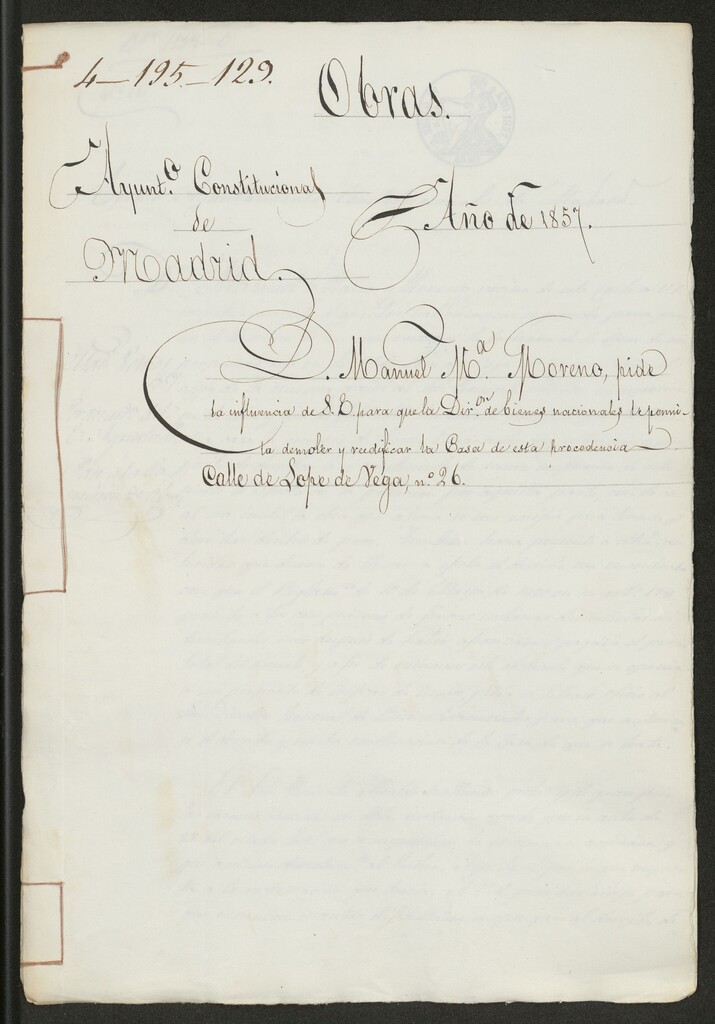 4-195-129.
Obras.
Ayunt.º Constitucional
de
Madrid.
Año de 1857.
D. Manuel M.ª Moreno, pide
la influencia de S. E. para que la Dir.on de bienes nacionales le permi-
ta demoler y reedificar la Casa de esta procedencia
Calle de Lope de Vega, n.º 26.